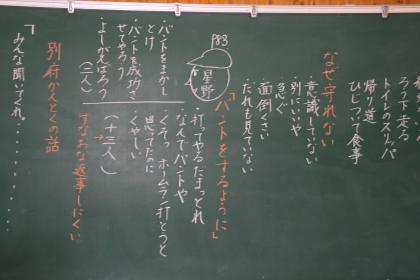 ろう下走る
トイレのスリッパ
帰り道
ひじついて食事
なぜ守れない
・意識していない
・別にいいや
・急ぐ
・面倒くさい
・だれも見ていない
P83
星野
「バントをするように」
・打ってやるだまっとれ
・なんでバントや
・くそっホームラン打とうと
思ってたのに
・くやしい
(十三人)
すなおな返事しにくい
・バントをまかしとけ
・バントを成功させてやろう
・よしがんばろう
(二人)
別府かんとくの話
「みんな聞いてくれ、